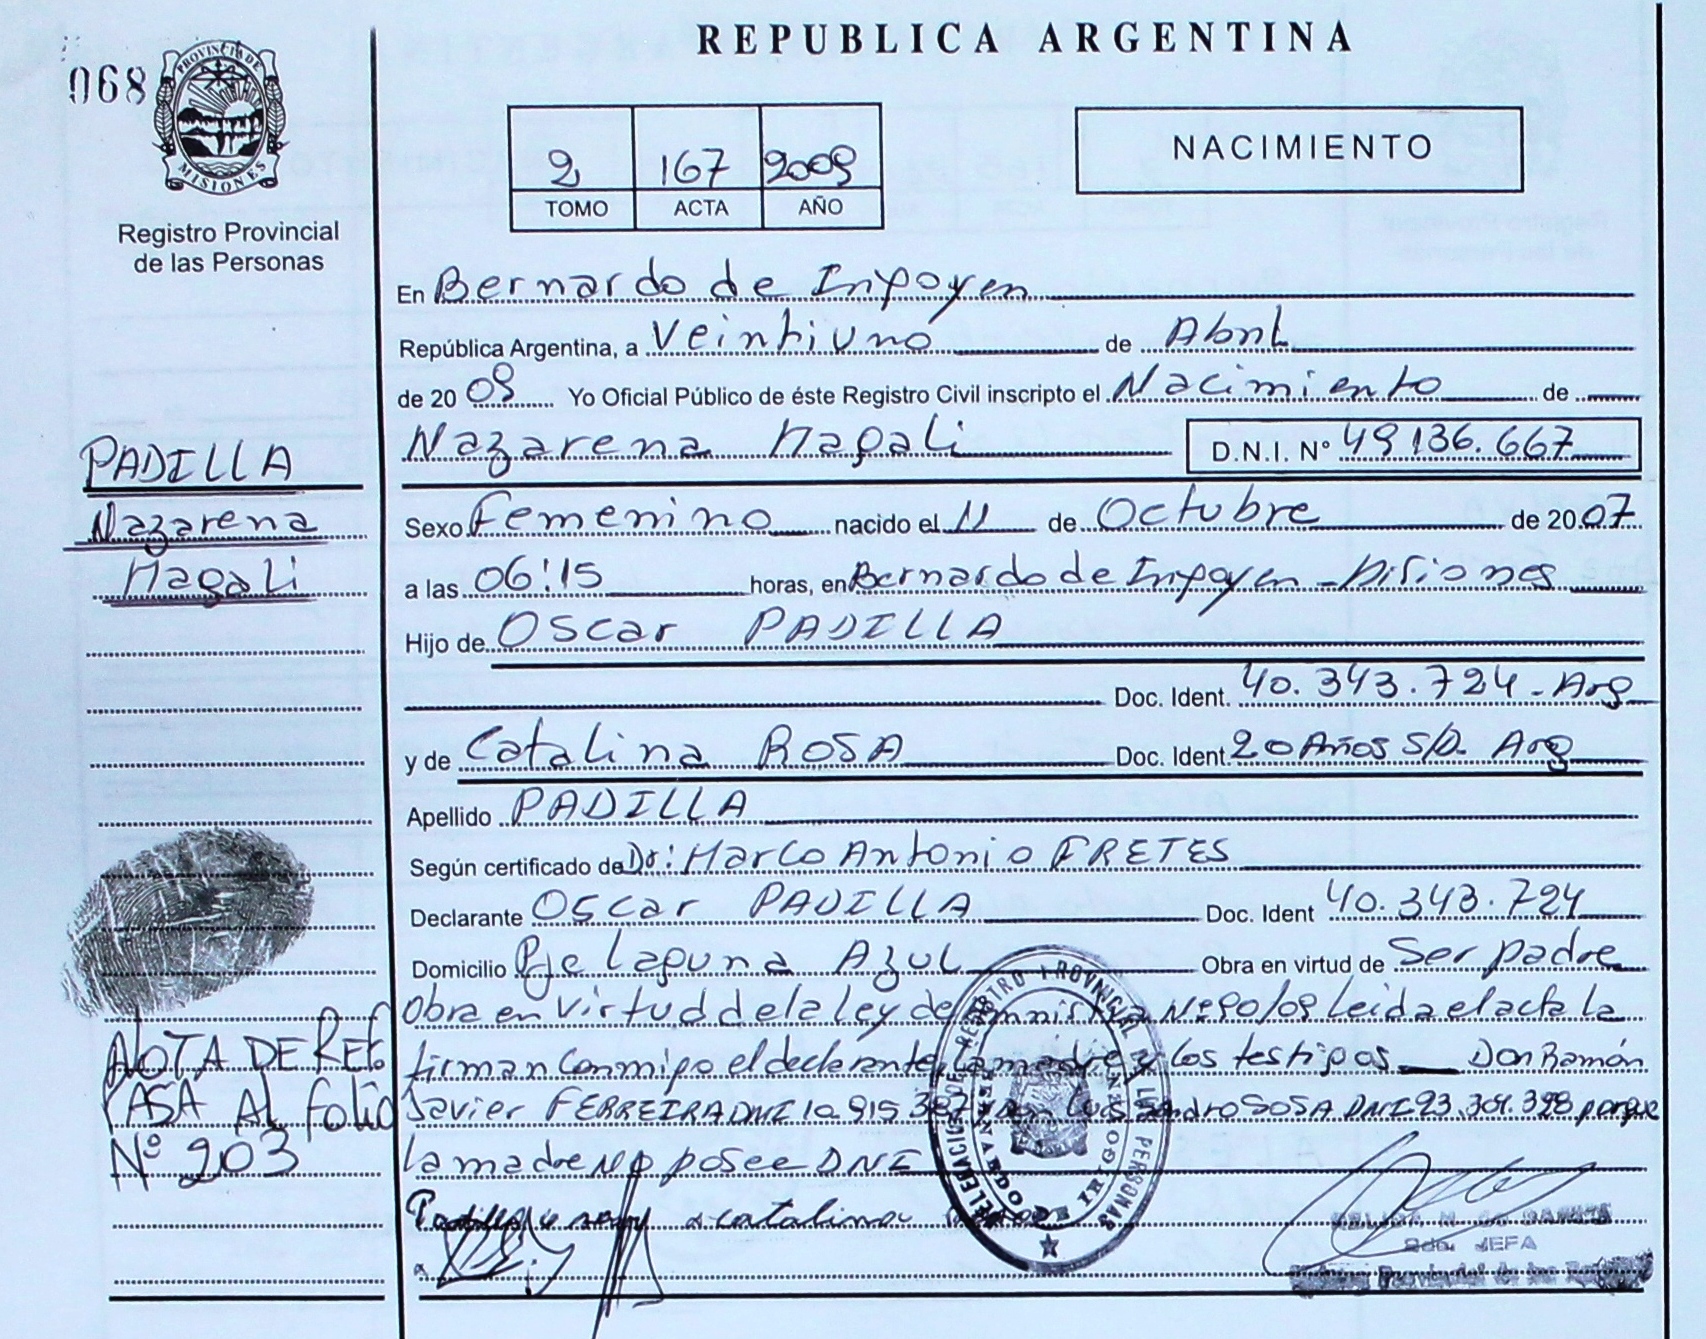 REPUBLICA ARGENTINA
068
PROVINCIA DE
MISIONES
Registro Provincial
de las Personas
2 167 2009
TOMO ACTA AÑO
NACIMIENTO
En Bernardo de Irigoyen
República Argentina, a Veintiuno de Abril
de 2009 Yo Oficial Público de éste Registro Civil inscripto el Nacimiento de
Nazarena Magali D.N.I. N° 49.136.667
PADILLA
Nazarena
Magali
Sexo Femenino nacido el 11 de Octubre de 2007
a las 06:15 horas, en Bernardo de Irigoyen - Misiones
Hijo de Oscar PADILLA
Doc. Ident. 40.343.724 - Arg
y de Catalina ROSA Doc. Ident 20 Años S/D. Arg
Apellido PADILLA
Según certificado de Dr: Marco Antonio FRETES
Declarante Oscar PADILLA Doc. Ident 40.343.724
Domicilio Pje Laguna Azul Obra en virtud de Ser padre
Obra en Virtud de la ley de Amnistia Nº 90/09 leida el acta la
firman Conmigo el declarante, la madre y los testigos Don Ramón
Javier FERREIRA DNI 10.915.387 Sandro SOSA DNI 23.301.398 porque
la madre no posee DNI
NOTA DE REF
PASA AL Folio
Nº 203
Padilla catalina
DELEGACION DE REGISTRO PROVINCIAL DE LAS PERSONAS
BERNARDO DE IRIGOYEN
JEFA
Provincial de las